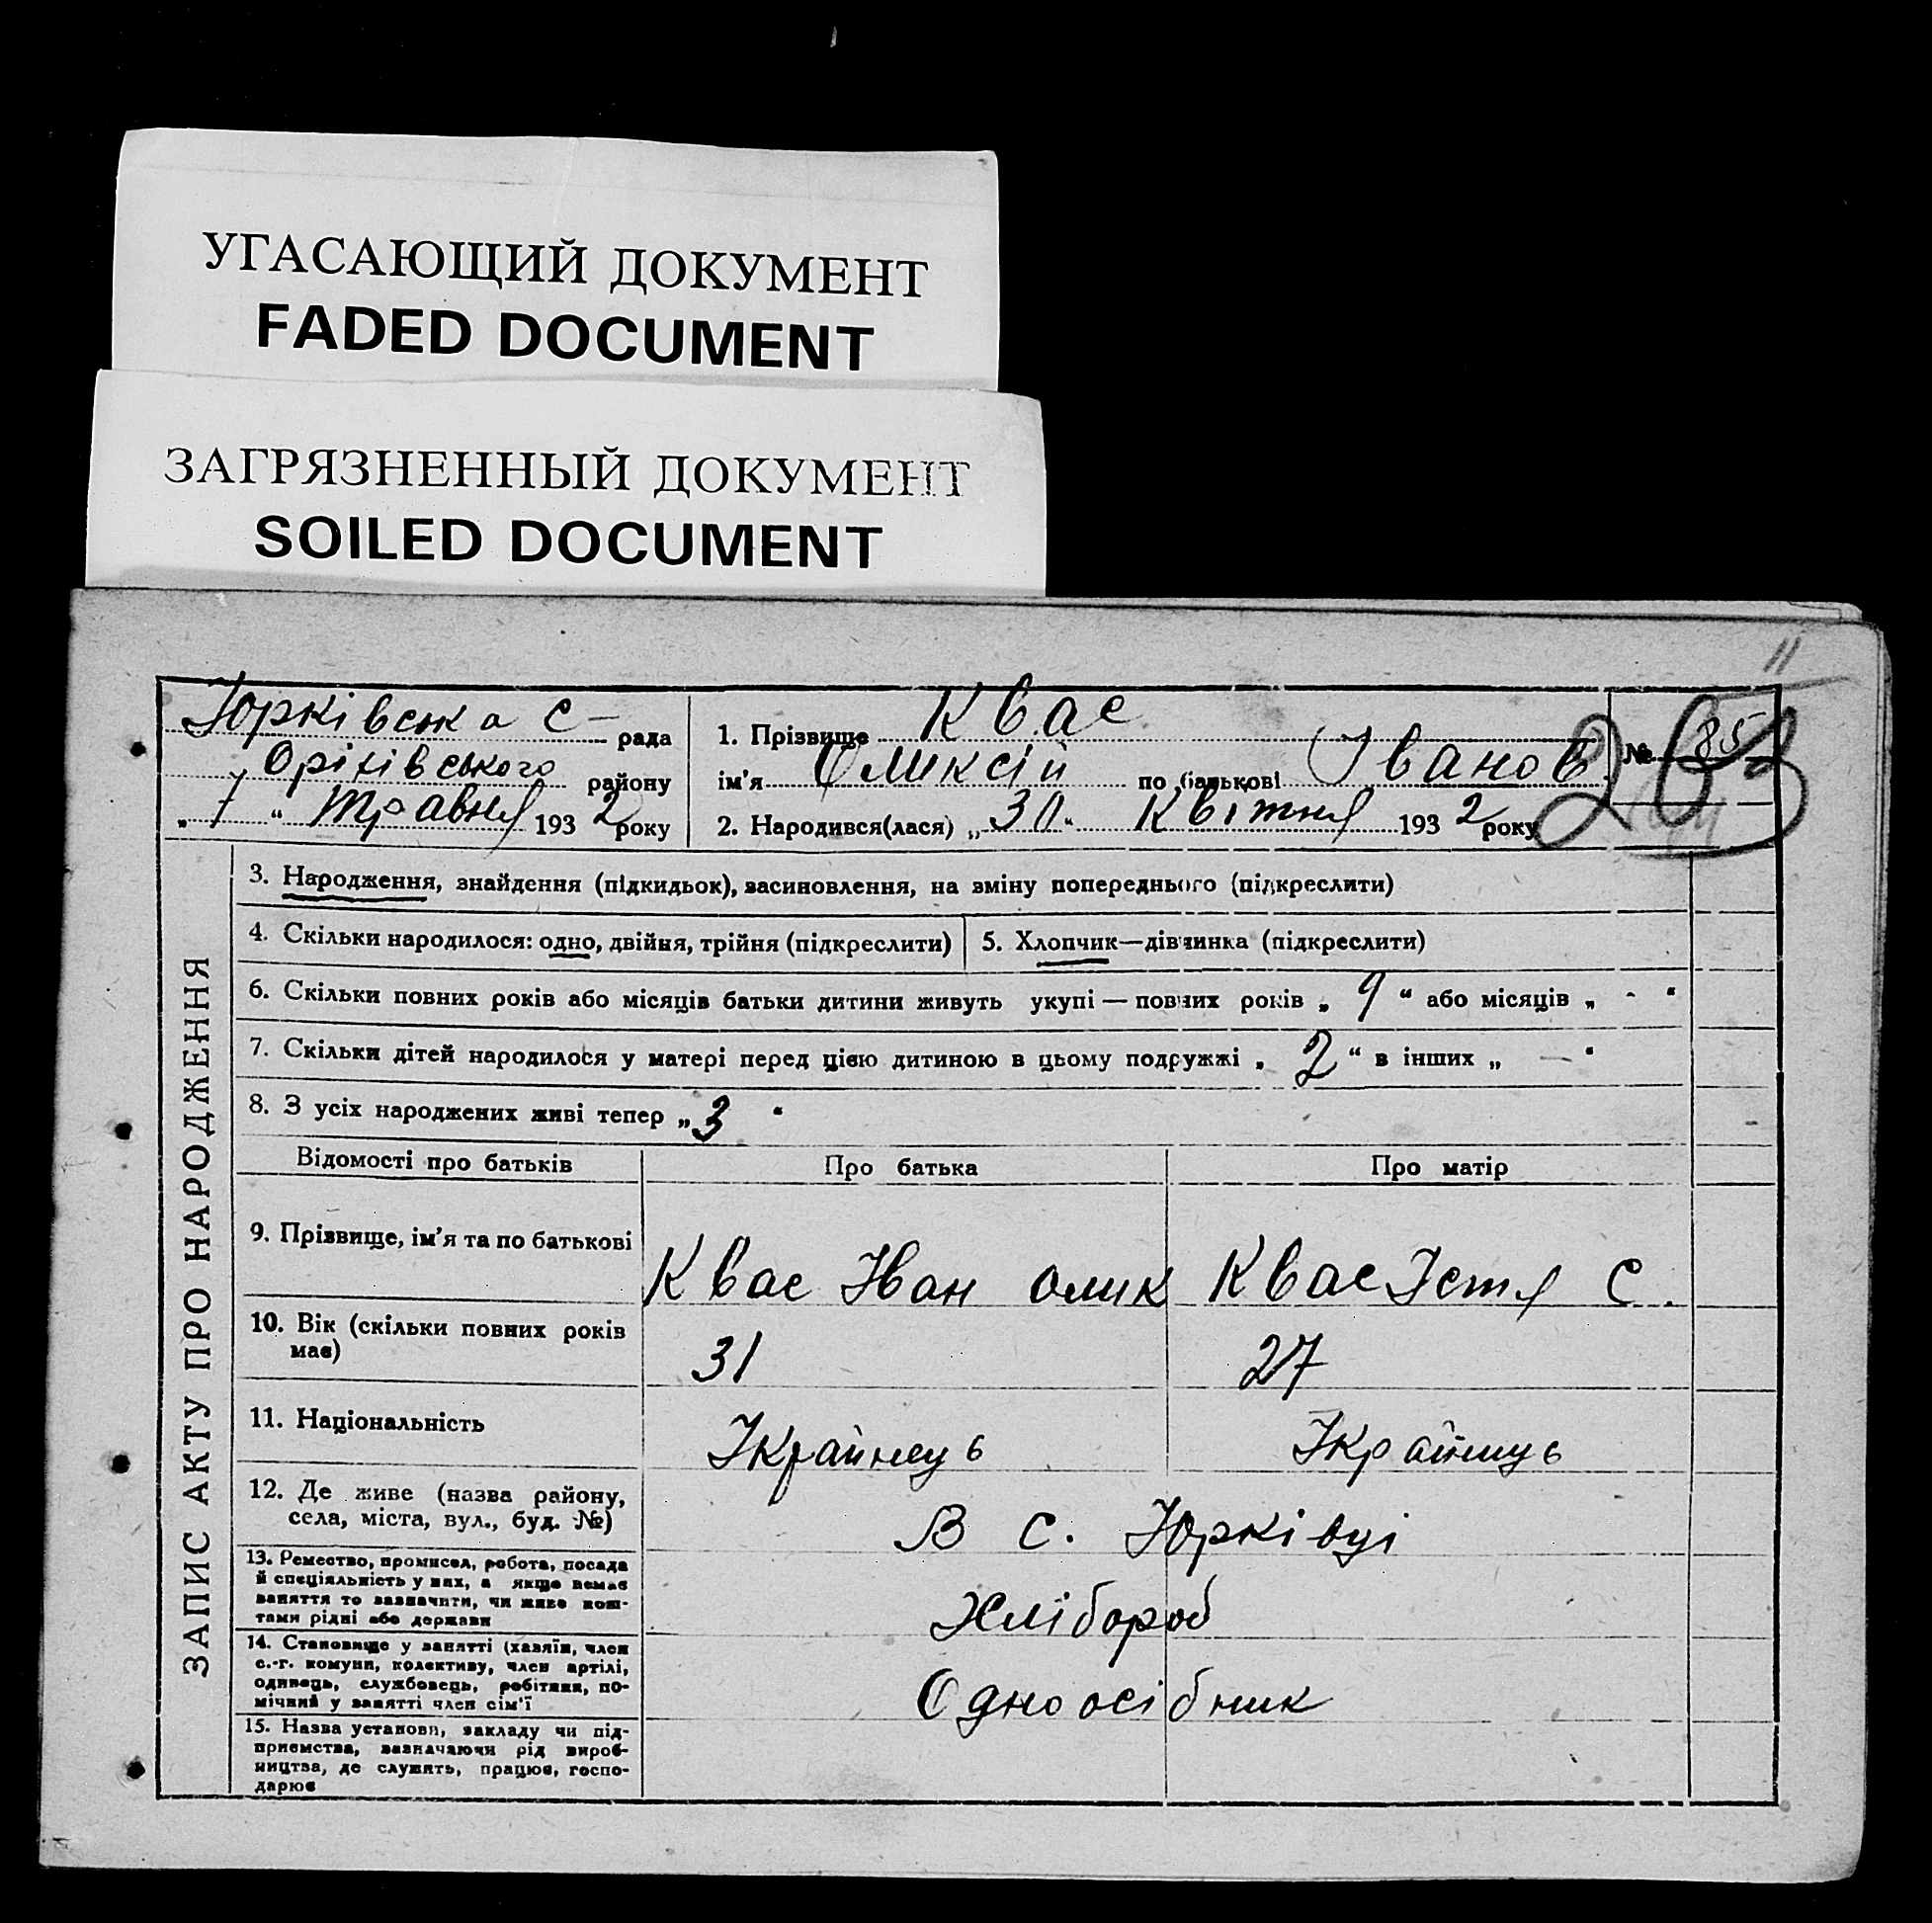 УГАСАЮЩИЙ ДОКУМЕНТ
FADED DOCUMENT
ЗАГРЯЗНЕННЫЙ ДОКУМЕНТ
SOILED DOCUMENT
11
Юрківська С- рада
Оріхівського району
„ 7 “ Травня 1932 року
1. Прізвище Квас
ім'я Оликсій по батькові Іванов
2. Народився(лася) „ 30 “ Квітня 1932 року
№ 85
263
ЗАПИС АКТУ ПРО НАРОДЖЕННЯ
3. Народження, знайдення (підкидьок), засиновлення, на зміну попереднього (підкреслити)
4. Скільки народилося: одно, двійня, трійня (підкреслити)
5. Хлопчик—дівчинка (підкреслити)
6. Скільки повних років або місяців батьки дитини живуть укупі — повних років „ 9 “ або місяців „ - “
7. Скільки дітей народилося у матері перед цією дитиною в цьому подружжі „ 2 “ в інших „ — “
8. З усіх народжених живі тепер „ 3 “
Відомості про батьків Про батька Про матір
9. Прізвище, ім'я та по батькові
Квас Іван Олик Квас Устя С.
10. Вік (скільки повних років
має)
31 27
11. Національність
Українець Українць
12. Де живе (назва району,
села, міста, вул., буд. №)
В С. Юрківці
13. Ремество, промисел, робота, посада
й спеціяльність у них, а якщо немає
заняття то зазначити, чи живе кош-
тами рідні або держави
Хлібороб
14. Становище у занятті (хазяїн, член
с.-г. комуни, колективу, член артілі,
одинець, службовець, робітник, по-
мічний у занятті член сім'ї
Одноосібник
15. Назва установи, закладу чи під-
приємства, зазначаючи рід вироб-
ництва, де служить, працює, госпо-
дарює